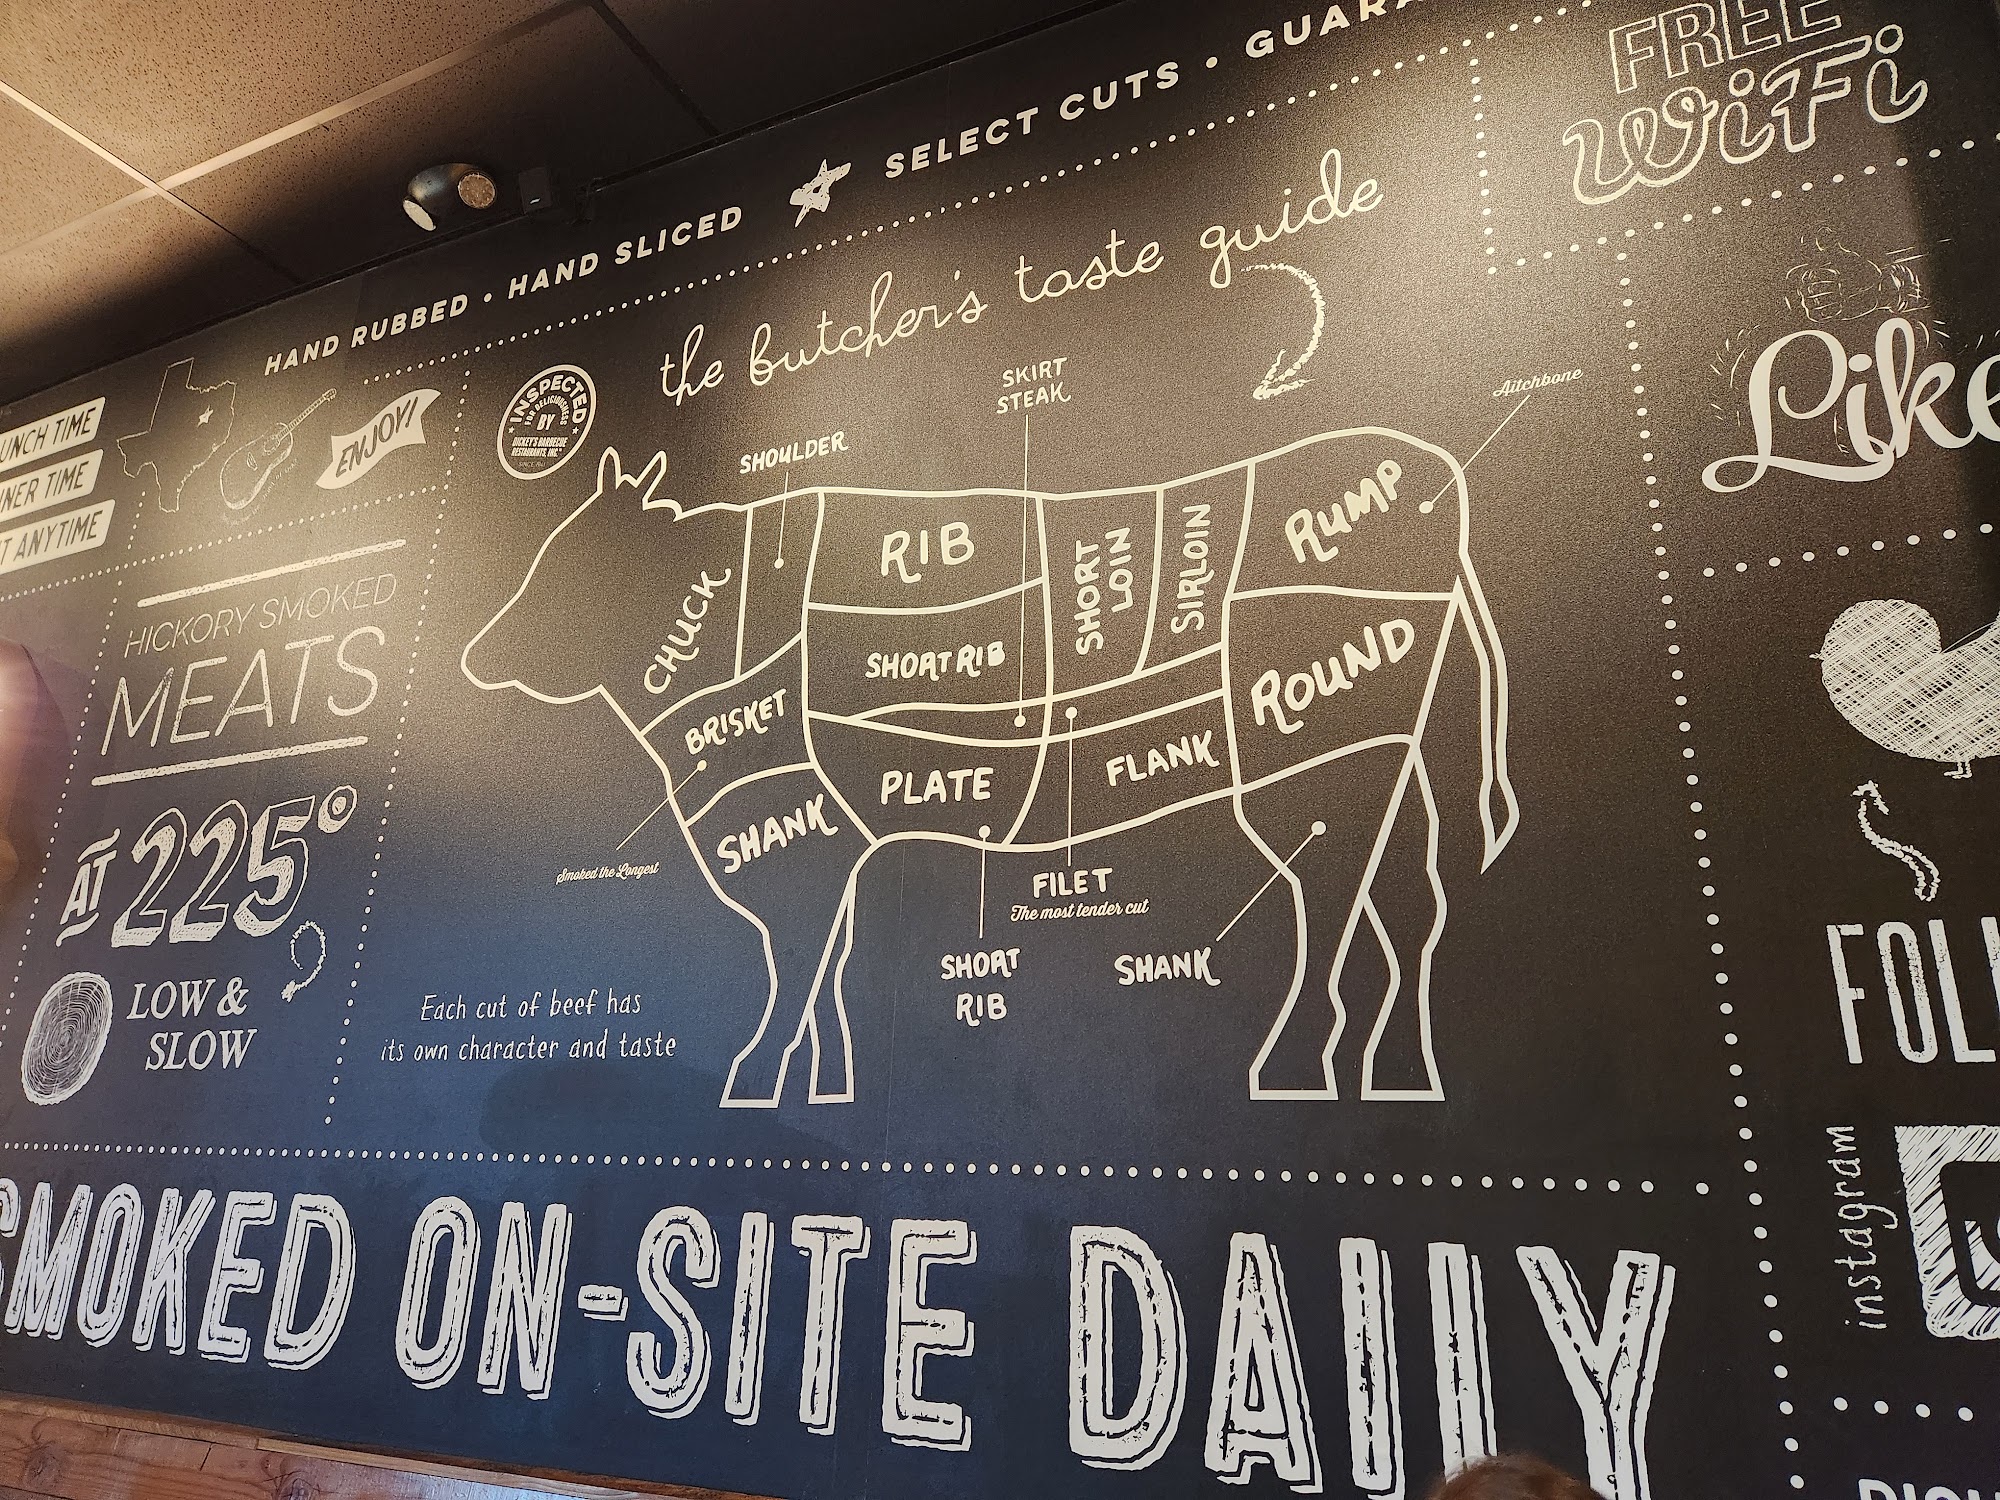 HAND RUBBED • HAND SLICED
SELECT CUTS •
FREE
WiFi
the butcher's taste guide
ENJOY!
INSPECTED
FOR DELICIOUSNESS
BY
DICKEY'S BARBECUE
RESTAURANTS, INC.
TIME
TIME
ANYTIME
HICKORY SMOKED
MEATS
AT 225°
LOW &
SLOW
SHOULDER
SKIRT
STEAK
Aitchbone
CHUCK
RIB
SHORT
LOIN
SIRLOIN
RUMP
SHORT RIB
BRISKET
ROUND
PLATE
FLANK
SHANK
Smoked the Longest
FILET
The most tender cut
SHORT
RIB
SHANK
Each cut of beef has
its own character and taste
Like
instagram
SMOKED ON-SITE DAILY